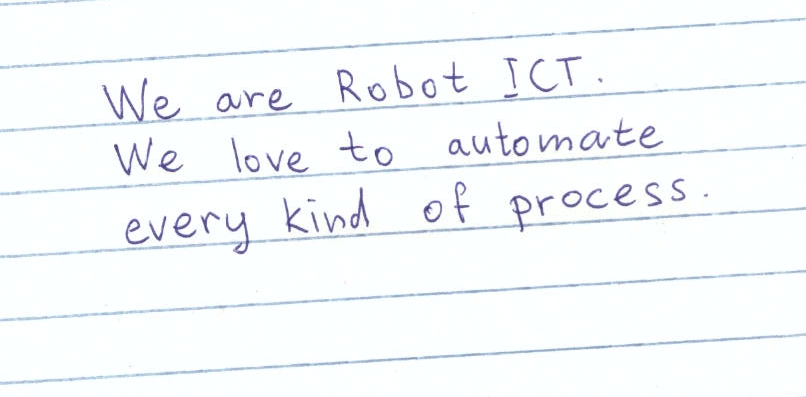 We are Robot ICT.
We love to automate
every kind of process.